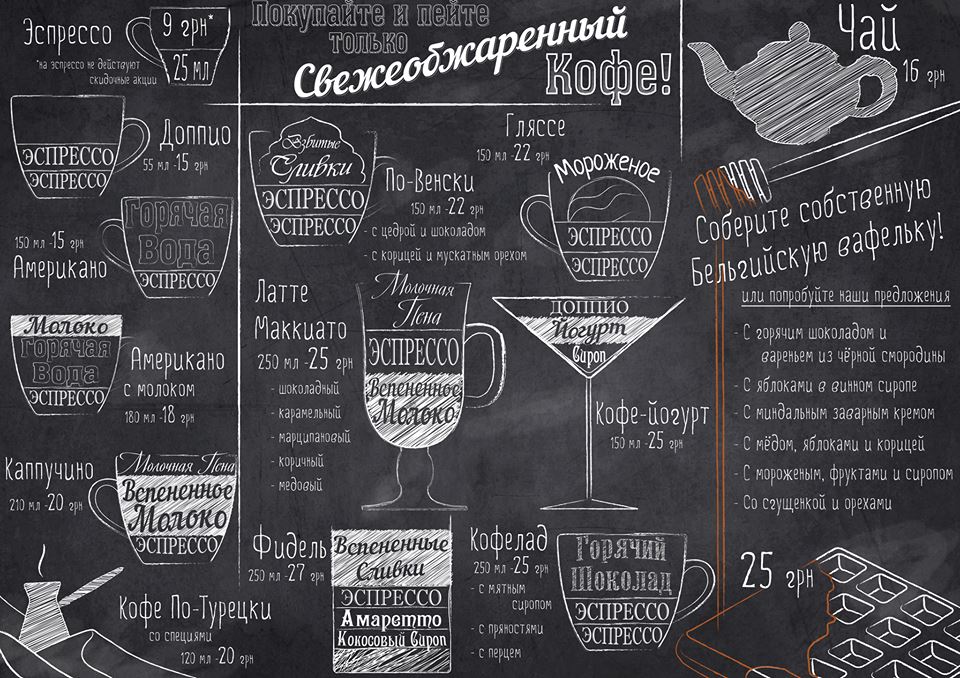 Эспрессо
9 грн*
25 мл
*на эспрессо не действуют
скидочные акции
ЭСПРЕССО
ЭСПРЕССО
Доппио
55 мл -15 грн
Горячая
Вода
ЭСПРЕССО
150 мл -15 грн
Американо
Молоко
Горячая
Вода
ЭСПРЕССО
Американо
с молоком
180 мл -18 грн
Каппучино
210 мл -20 грн
Молочная Пена
Вспененное
Молоко
ЭСПРЕССО
Кофе По-Турецки
со специями
120 мл -20 грн
Покупайте и пейте
только
Свежеобжаренный
Кофе!
Взбитые
Сливки
ЭСПРЕССО
ЭСПРЕССО
По-Венски
150 мл -22 грн
- с цедрой и шоколадом
- с корицей и мускатным орехом
Гляссе
150 мл -22 грн
Мороженое
ЭСПРЕССО
ЭСПРЕССО
Латте
Маккиато
250 мл -25 грн
- шоколадный
- карамельный
- марципановый
- коричный
- медовый
Молочная
Пена
ЭСПРЕССО
Вспененное
Молоко
ДОППИО
Йогурт
Сироп
Кофе-йогурт
150 мл -25 грн
Фидель
250 мл -27 грн
Вспененные
Сливки
ЭСПРЕССО
Амаретто
Кокосовый Сироп
Кофелад
250 мл -25 грн
- с мятным
сиропом
- с пряностями
- с перцем
Горячий
Шоколад
ЭСПРЕССО
ЭСПРЕССО
Чай
16 грн
Соберите собственную
Бельгийскую вафельку!
или попробуйте наши предложения
- С горячим шоколадом и
вареньем из чёрной смородины
- С яблоками в винном сиропе
- С миндальным заварным кремом
- С мёдом, яблоками и корицей
- С мороженым, фруктами и сиропом
- Со сгущенкой и орехами
25 грн